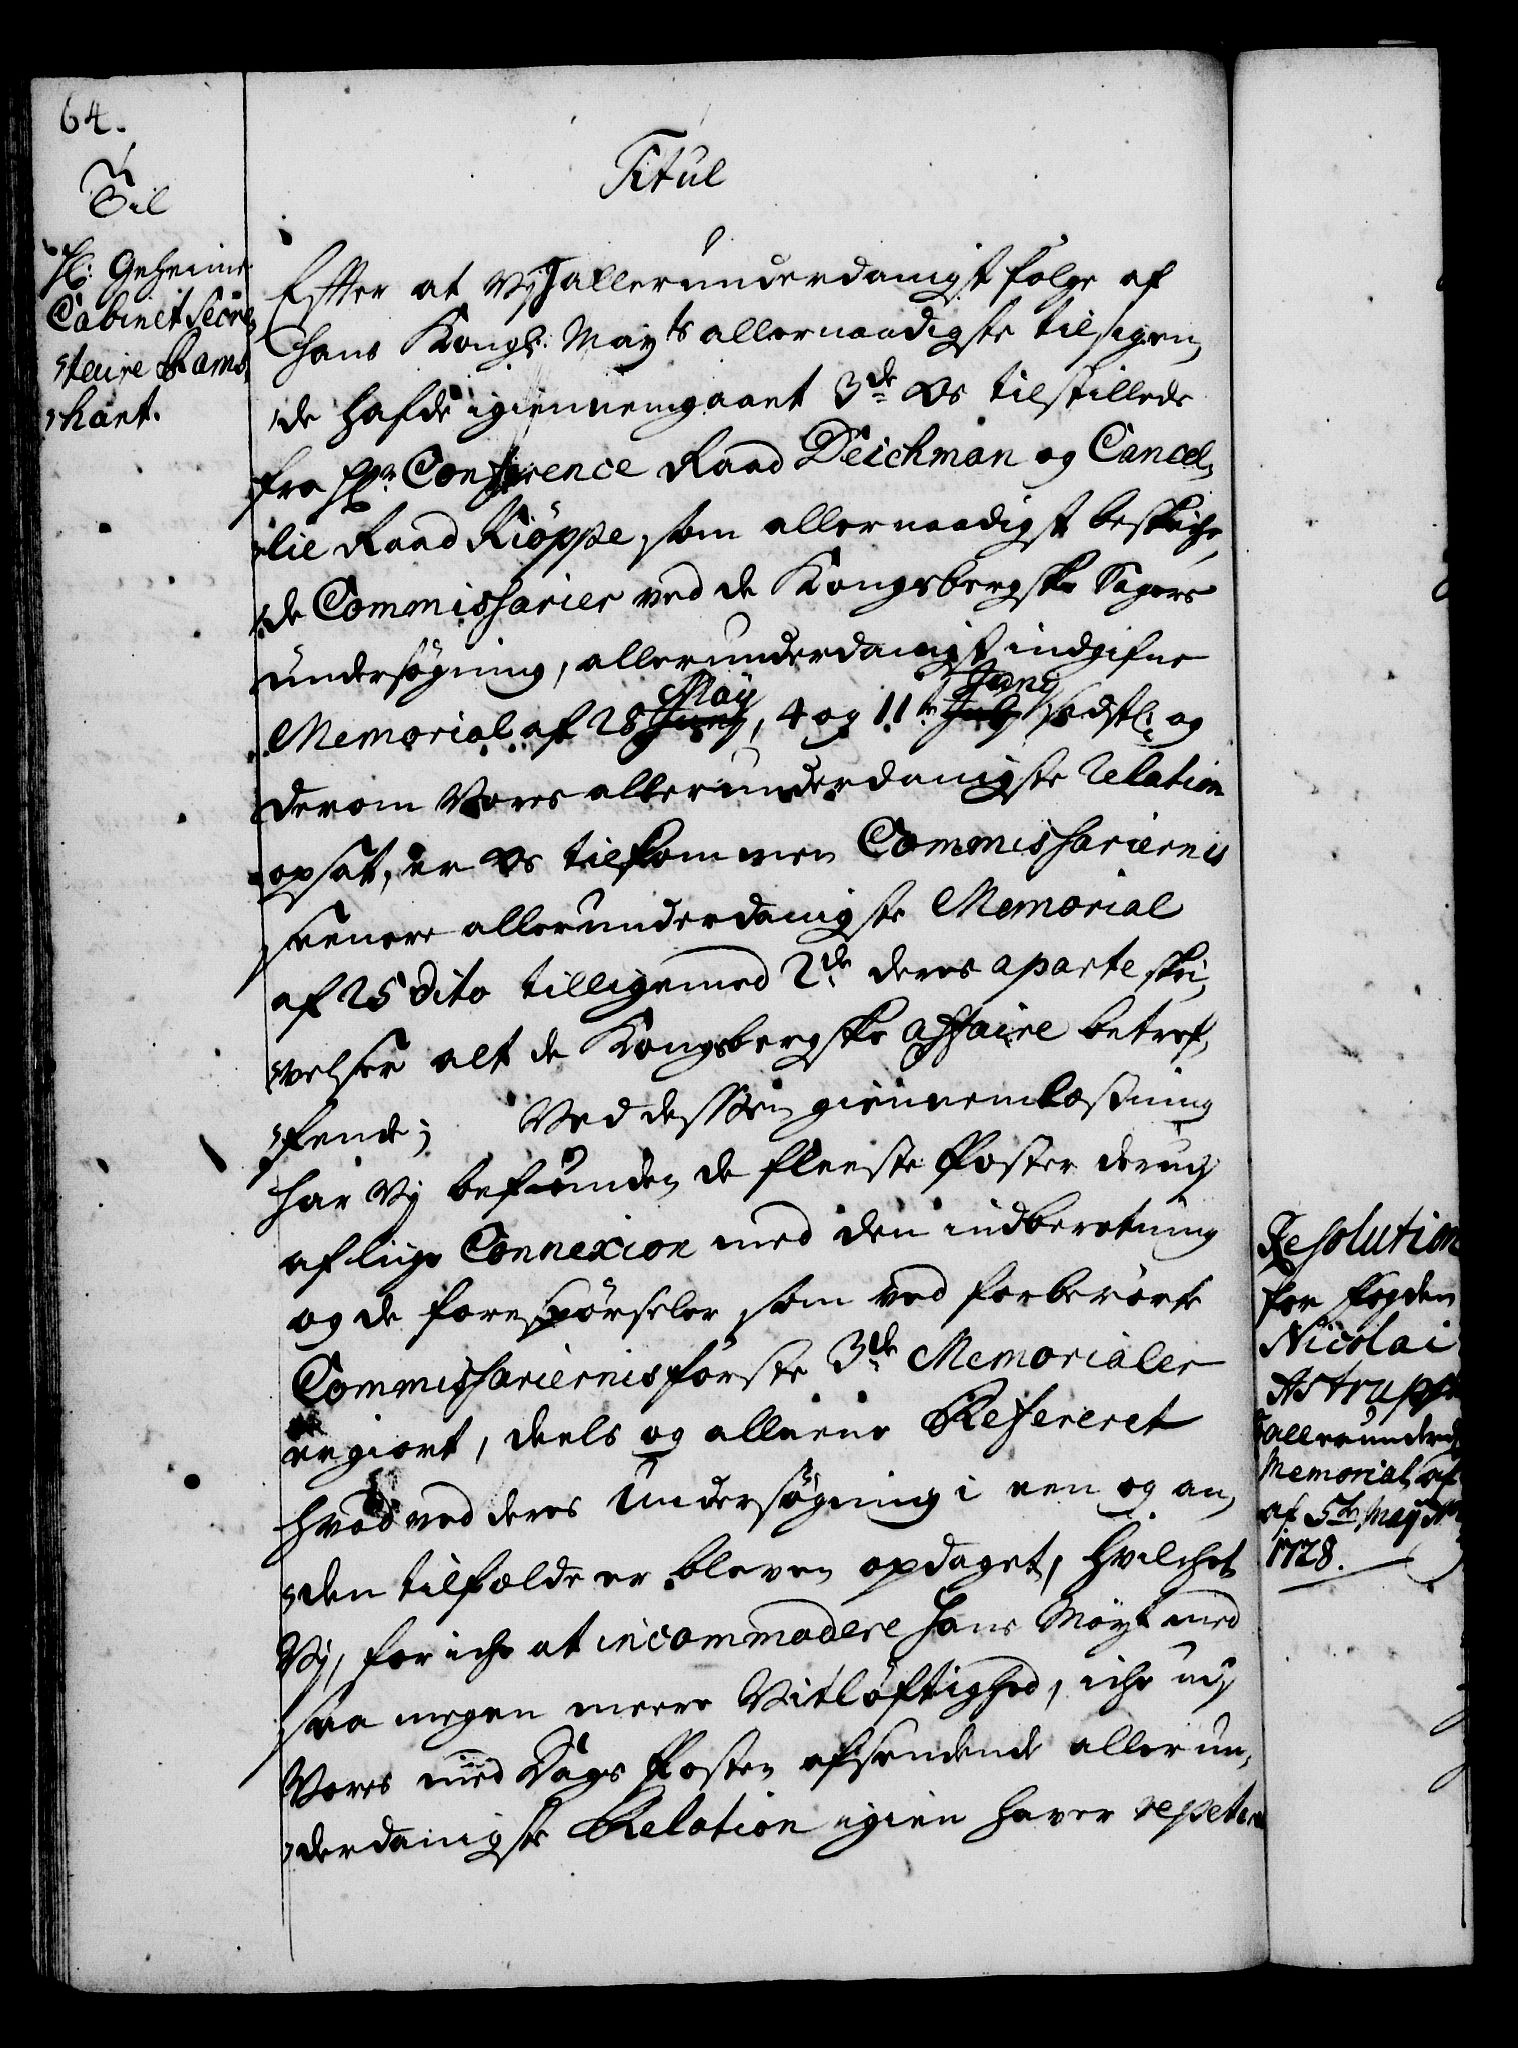 64.
Til
H: Geheime
Cabinet Secre,
,,taire Rams,
,,hart.
Titul
Efter at Vj I allerunderdanigst følge af
Hans Kongl: Mayts allernaadigste tilsigen,
,,de hafde igiennemgaaet 3de os tilstillede
fra Hr Conference Raad Deichman og Cancel,
,,lie Raad Kiøppe, som allernaadigst beskiche,
,,de Commissarier ved de Kongsbergske Sagers
undersøgning, allerunderdanigst indgifne
Memorial af 28 Junij Maij, 4 og 11te July Junij sidstl: og
derom Vores allerunderdanigste Relation
opsat, er os tilkommen Commissariernis
seenere allerunderdanigste Memorial
af 25 dito tilligemed 2de deres aparte skri,
,,velser alt de Kongsbergske affaire betref,
,,fende; Ved dessen giennemlæsning
har Vj befunden de fleeste Poster derudj
af liige Connexion med den indberetning
og de forespørseler som ved forberørte
Commissariernis første 3de Memorialer
er giort, deels og alleene Refereret
hvad ved deres Undersøgning i een og an,
,,den tilfælde er bleven opdaget, hvilchet
Vj, for iche at incommodere Hans Mayt med
saa megen meere Vitløftighed, iche udj
Vores med Dags Posten afsendende allerun,
,,derdanigste Relation igien haver repeteret
Resolution
for fogden
Nicolai
Astrupps
allerunderd
Memorial af
af 5te Maij
1728.